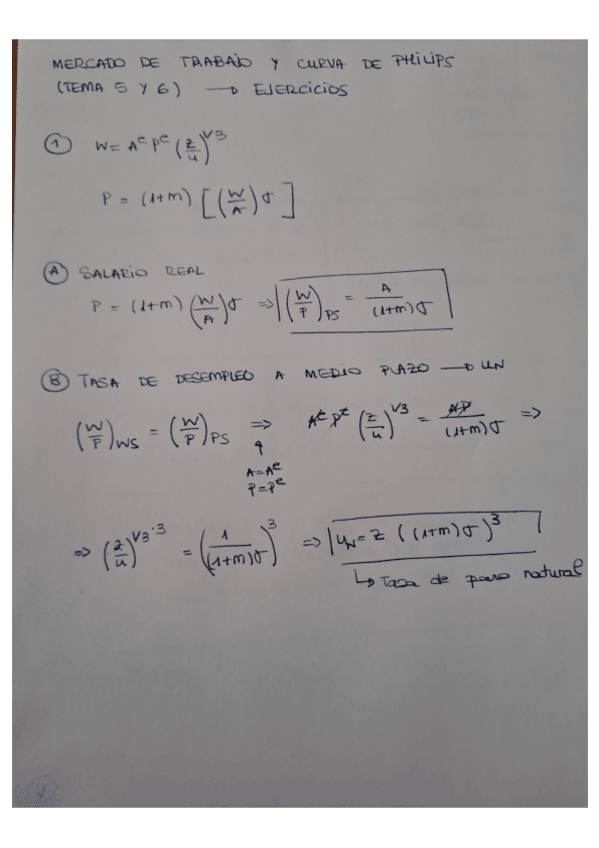 MERCADO DE TRABAJO Y CURVA DE PHILIPS
(TEMA 5 Y 6) → EJERCICIOS
① W = Aᵉ Pᵉ (z/u)^1/3
P = (1+m) [(W/A)σ]
Ⓐ SALARIO REAL
P = (1+m) (W/A)σ ⇒ (W/P)PS = A/((1+m)σ)
Ⓑ TASA DE DESEMPLEO A MEDIO PLAZO → UN
(W/P)WS = (W/P)PS ⇒ Aᵉ Pᵉ (z/u)^1/3 = AP/((1+m)σ) ⇒
↑
A=Aᵉ
P=Pᵉ
⇒ (z/u)^1/3·3 = (1/((1+m)σ))^3 ⇒ uN = z ((1+m)σ)^3
↳ Tasa de paro natural